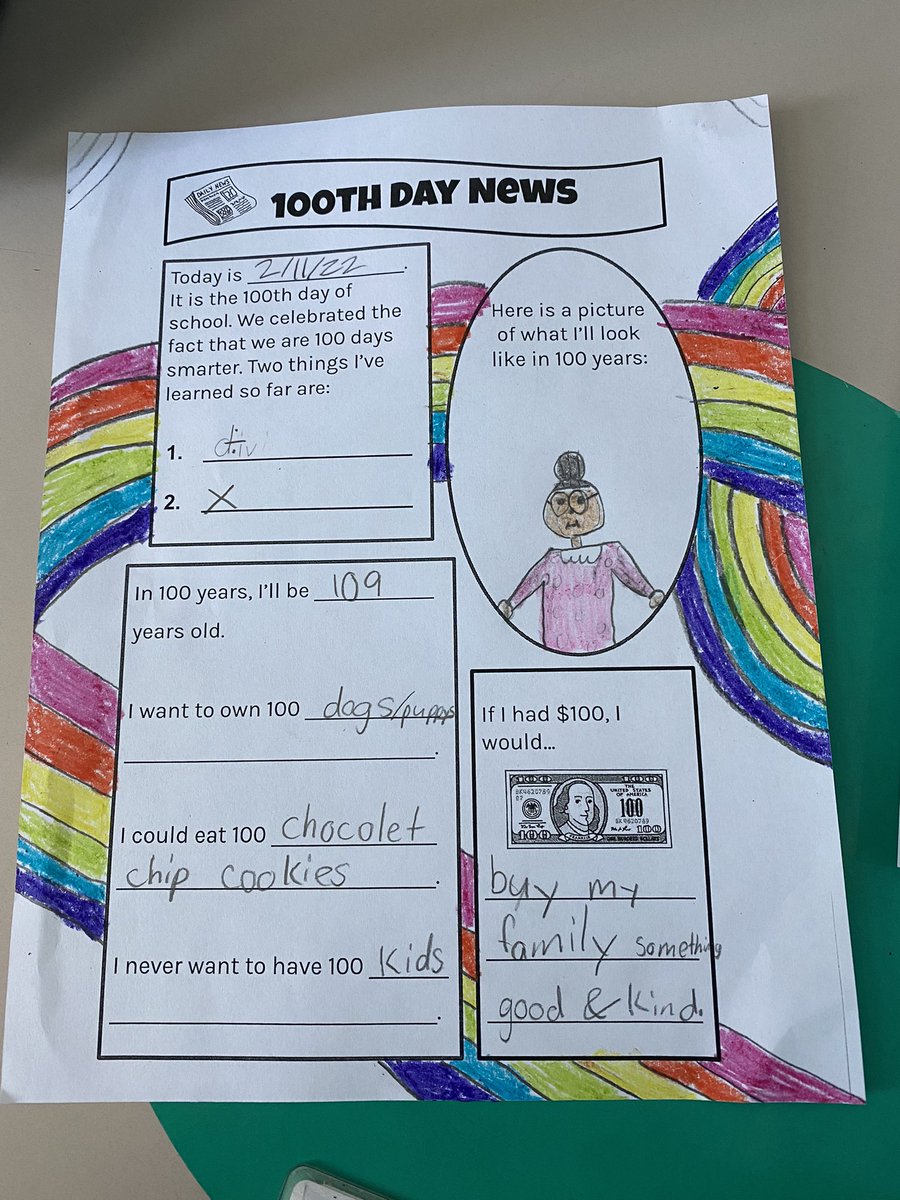 DAILY NEWS
100TH DAY NEWS
Today is 2/11/22.
It is the 100th day of
school. We celebrated the
fact that we are 100 days
smarter. Two things I've
learned so far are:
1. div
2. X
Here is a picture
of what I'll look
like in 100 years:
In 100 years, I'll be 109
years old.
I want to own 100 dogs/puppys
.
I could eat 100 chocolet
chip cookies.
I never want to have 100 kids
.
If I had $100, I
would...
THE
UNITED STATES
OF AMERICA
BK4620789
100
BK4620789
100
FRANKLIN
100
ONE HUNDRED DOLLARS
buy my
family something
good & kind.